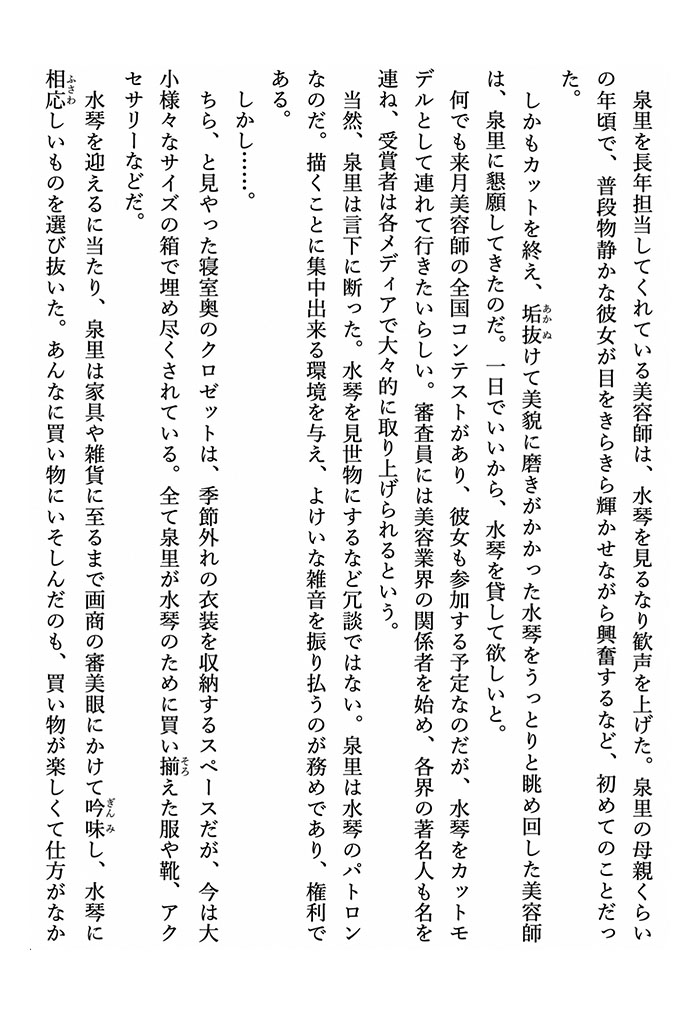 泉里を長年担当してくれている美容師は、水琴を見るなり歓声を上げた。泉里の母親くらい
の年頃で、普段物静かな彼女が目をきらきら輝かせながら興奮するなど、初めてのことだっ
た。
しかもカットを終え、垢抜けて美貌に磨きがかかった水琴をうっとりと眺め回した美容師
は、泉里に懇願してきたのだ。一日でいいから、水琴を貸して欲しいと。
何でも来月美容師の全国コンテストがあり、彼女も参加する予定なのだが、水琴をカットモ
デルとして連れて行きたいらしい。審査員には美容業界の関係者を始め、各界の著名人も名を
連ね、受賞者は各メディアで大々的に取り上げられるという。
当然、泉里は言下に断った。水琴を見世物にするなど冗談ではない。泉里は水琴のパトロン
なのだ。描くことに集中出来る環境を与え、よけいな雑音を振り払うのが務めであり、権利で
ある。
しかし……。
ちら、と見やった寝室奥のクロゼットは、季節外れの衣装を収納するスペースだが、今は大
小様々なサイズの箱で埋め尽くされている。全て泉里が水琴のために買い揃えた服や靴、アク
セサリーなどだ。
水琴を迎えるに当たり、泉里は家具や雑貨に至るまで画商の審美眼にかけて吟味し、水琴に
相応しいものを選び抜いた。あんなに買い物にいそしんだのも、買い物が楽しくて仕方がなか